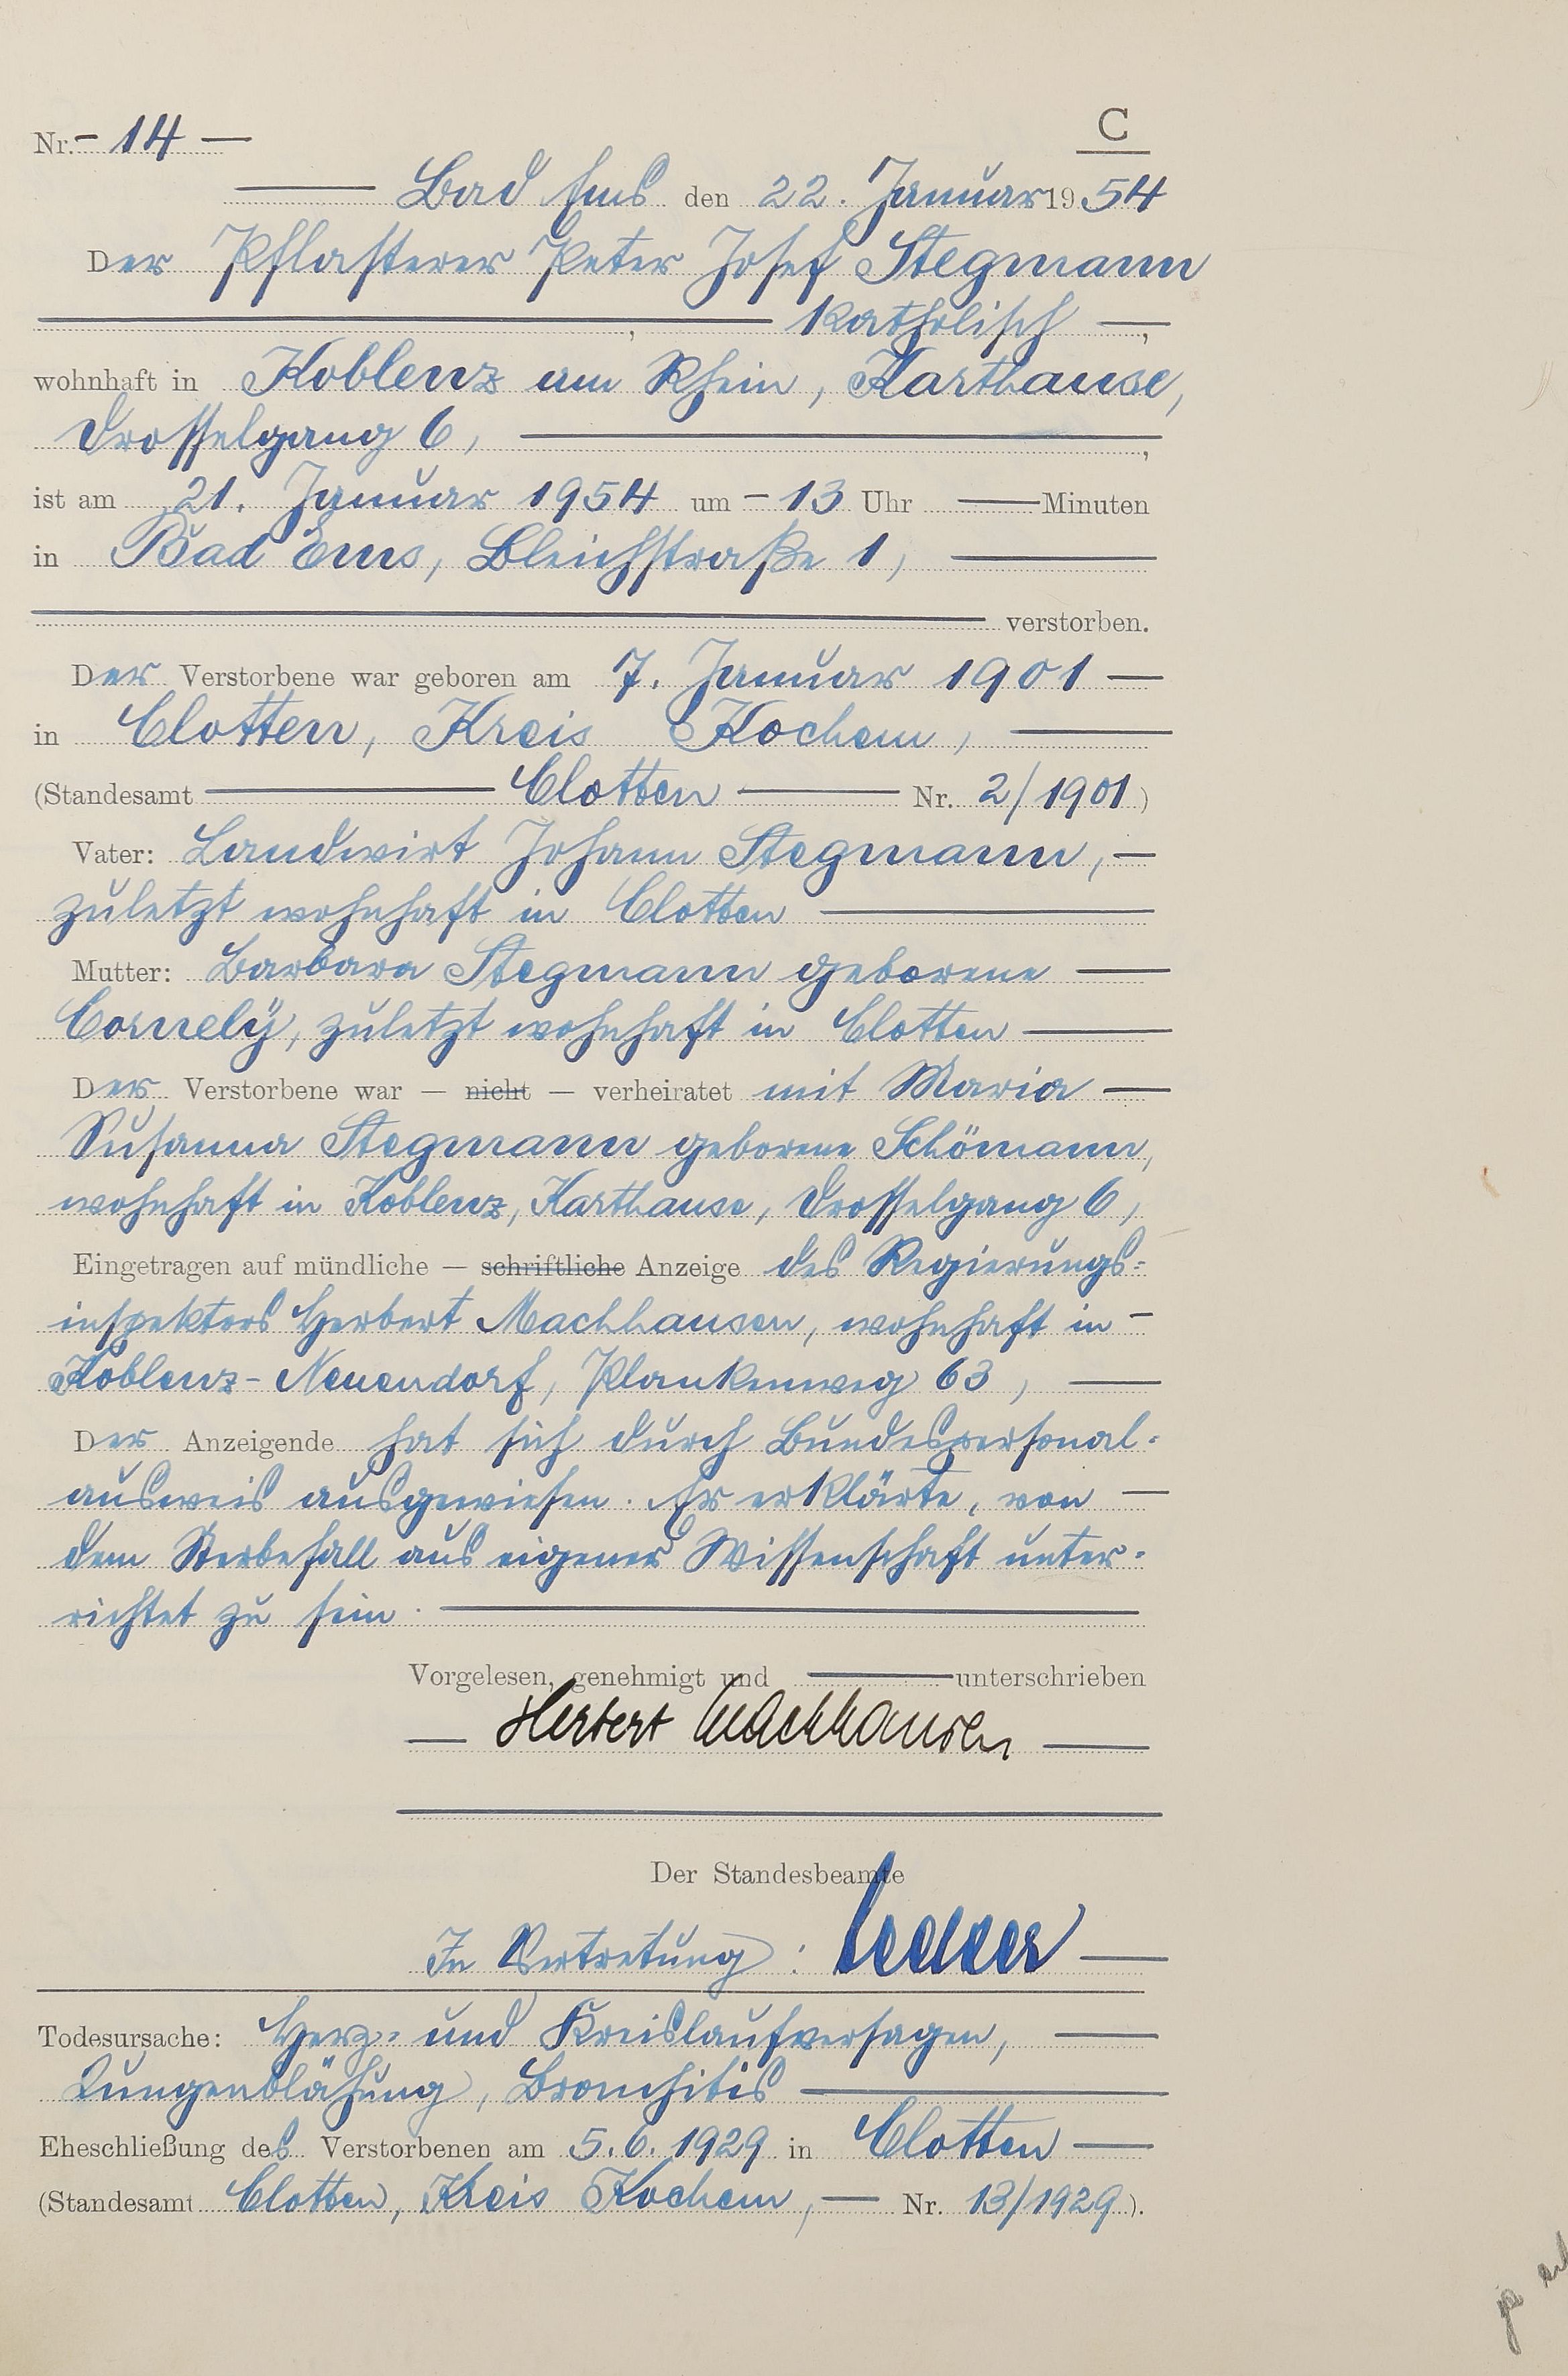 C
Nr. - 14 —
Bad Ems den 22. Januar 1954
Der Pflasterer Peter Josef Stegmann
, katholisch —,
wohnhaft in Koblenz am Rhein, Karthause,
Drosselgang 6, ,
ist am 21. Januar 1954 um - 13 Uhr — Minuten
in Bad Ems, Bleichstraße 1, —
verstorben.
Der Verstorbene war geboren am 7. Januar 1901 —
in Clotten, Kreis Kochem, —
(Standesamt — Clotten — Nr. 2/1901)
Vater: Landwirt Johann Stegmann, —
zuletzt wohnhaft in Clotten —
Mutter: Barbara Stegmann geborene —
Cornely, zuletzt wohnhaft in Clotten —
Der Verstorbene war — nicht — verheiratet mit Maria —
Susanna Stegmann geborene Schömann,
wohnhaft in Koblenz, Karthause, Drosselgang 6,
Eingetragen auf mündliche — schriftliche Anzeige des Regierungs=
inspektors Herbert Machhausen, wohnhaft in -
Koblenz-Neuendorf, Plankenweg 63, —
Der Anzeigende hat sich durch Bundespersonal=
ausweis ausgewiesen. Er erklärte, von —
dem Sterbefall aus eigener Wissenschaft unter=
richtet zu sein. —
Vorgelesen, genehmigt und — unterschrieben
— Herbert Machhausen —
Der Standesbeamte
In Vertretung: —
Todesursache: Herz= und Kreislaufversagen, —
Lungenblähung, Bronchitis —
Eheschließung des Verstorbenen am 5.6.1929 in Clotten —
(Standesamt Clotten, Kreis Kochem, — Nr. 13/1929).